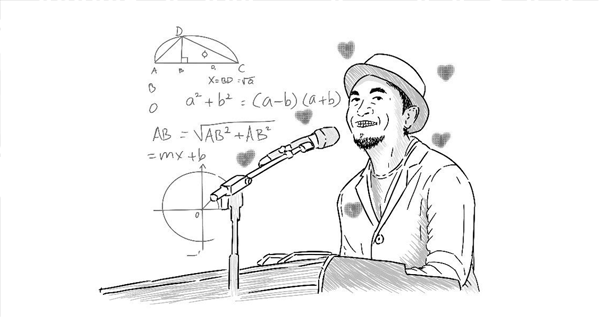 D
A B a C
X=BD=√a
B
O
a² + b² = (a-b) (a+b)
AB = √AB² + AB²
= mx + b
o